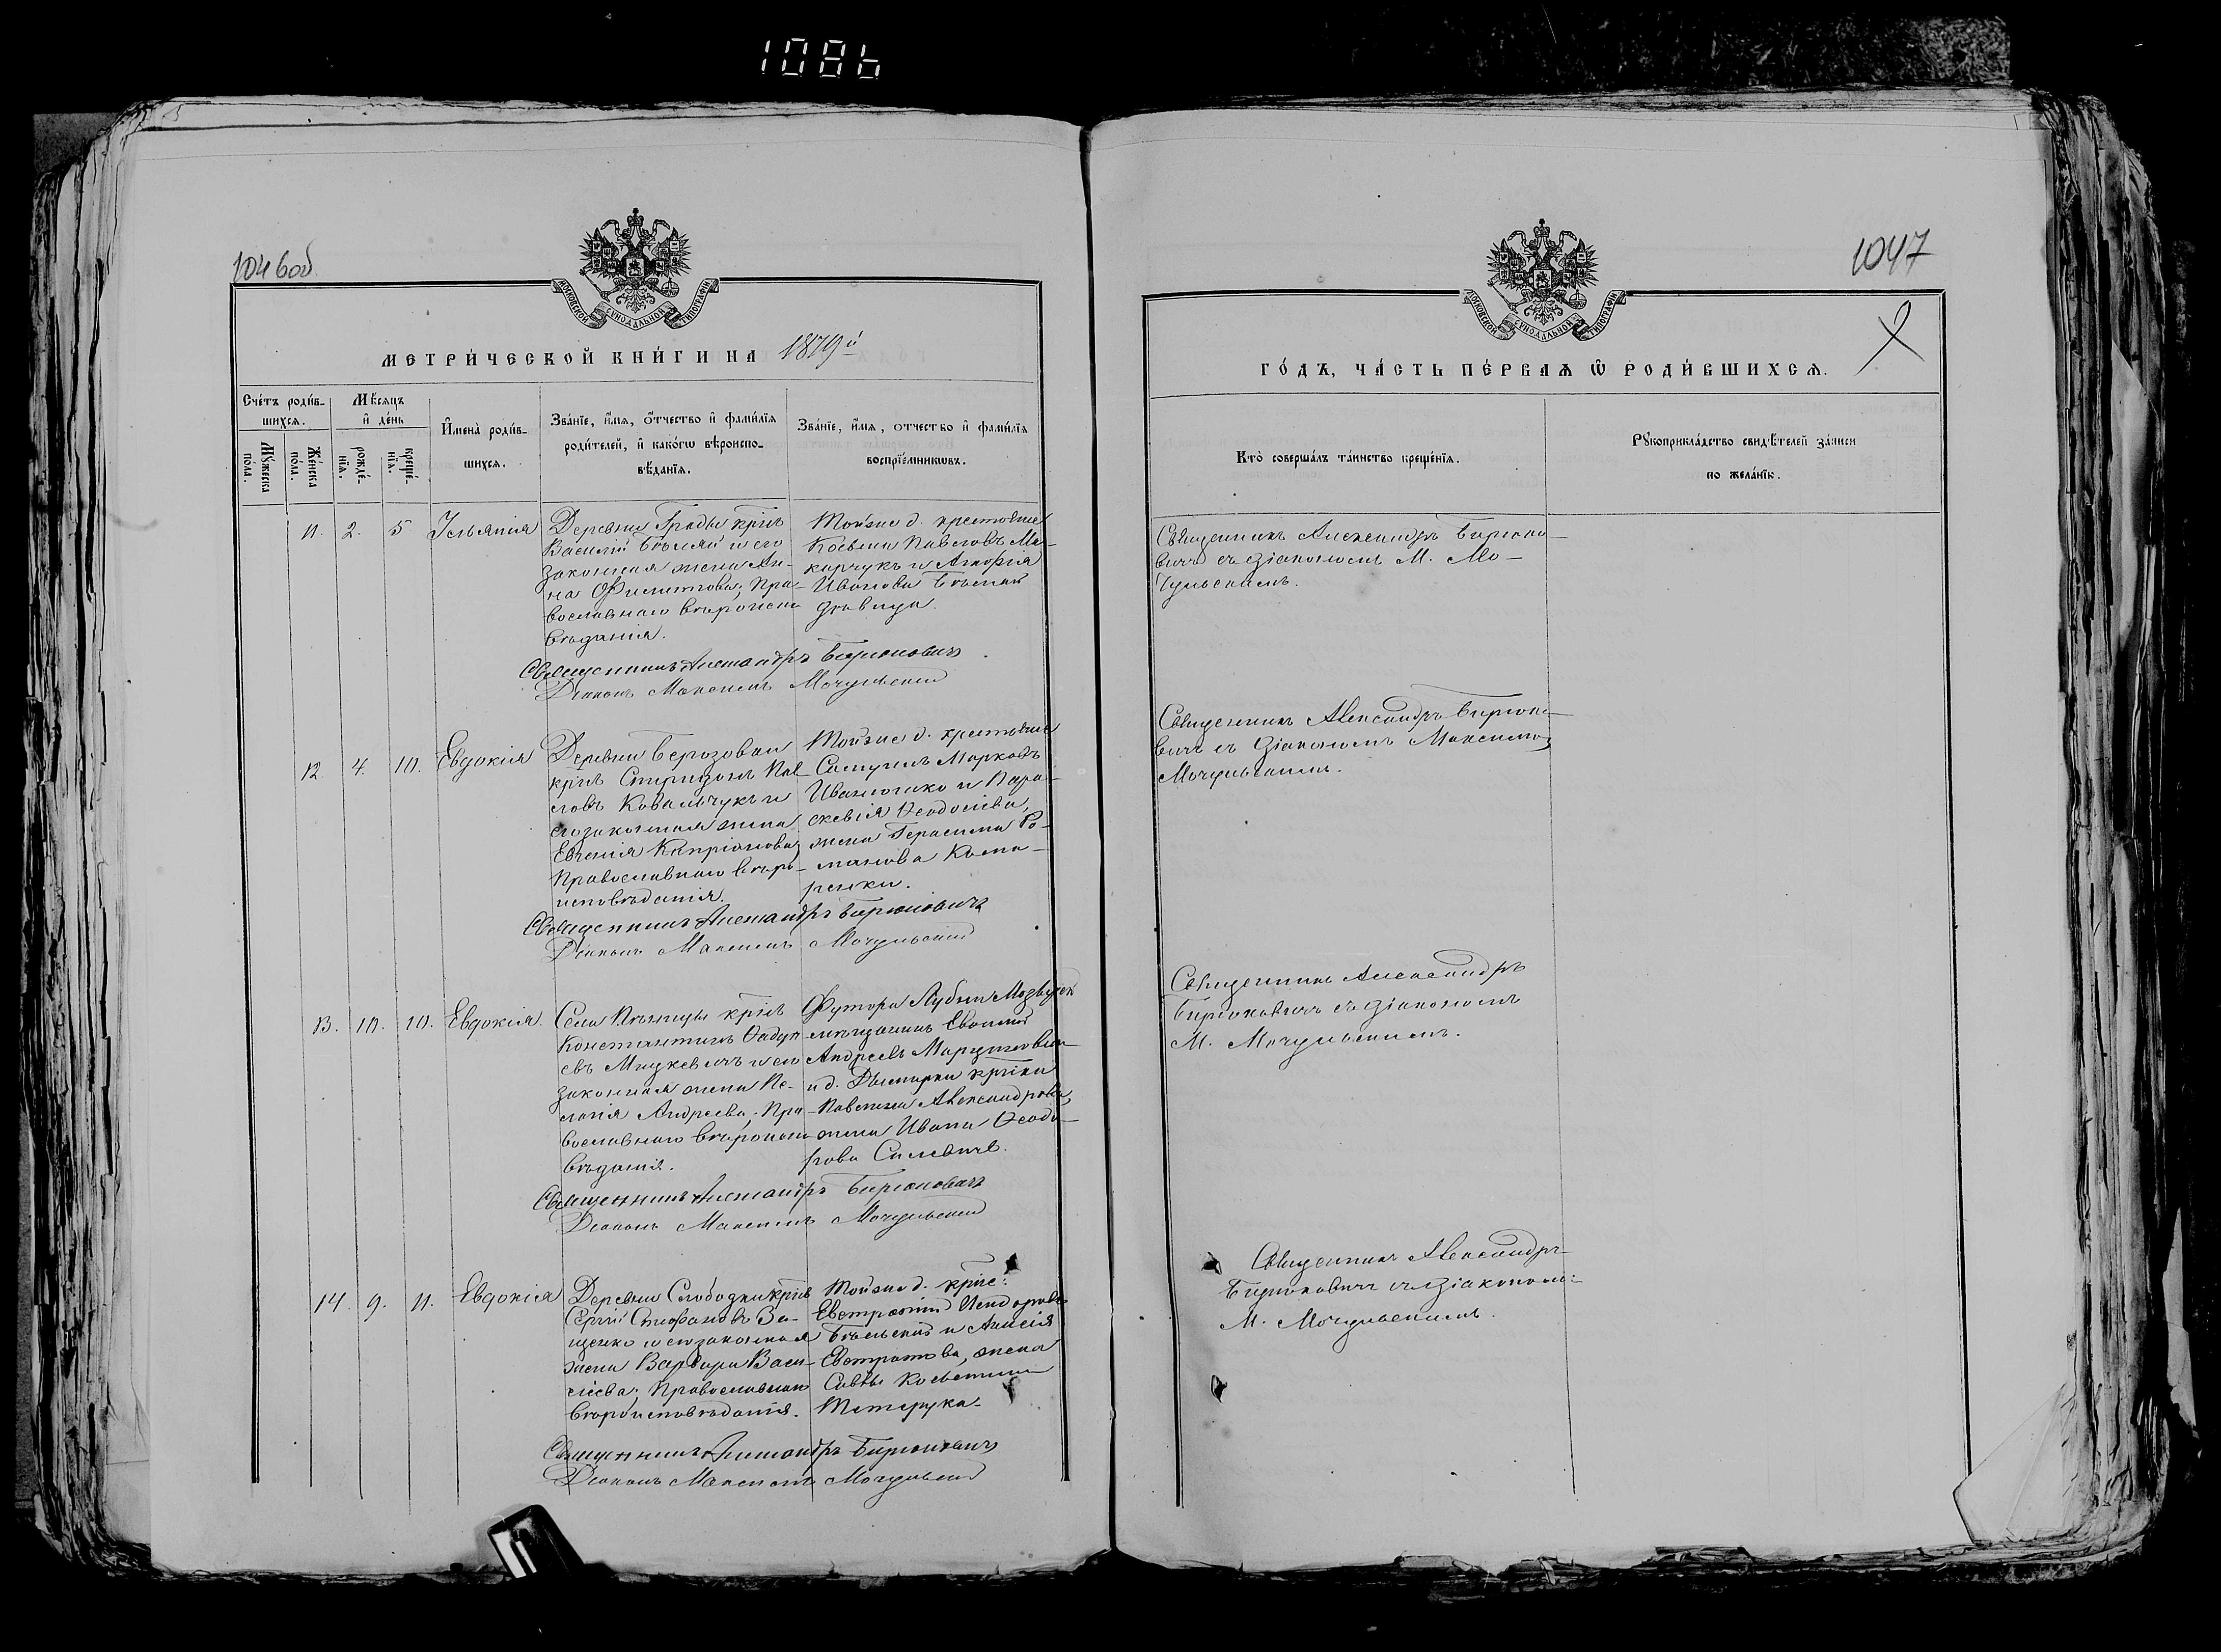 1086
1046об
МОСКОВСКОЙ СѴНОДАЛЬНОЙ ТИПОГРАФІИ
МЕТРИ́ЧЕСКОЙ КНИ́ГИ НА 1879й
Сче́тъ роди́в-
шихсѧ.
Мꙋ́жеска
по́ла.
Же́нска
по́ла.
Мѣ́сѧцъ
и҆ де́нь
рожде́-
нїѧ.
креще́-
нїѧ.
И҆мена̀ роди́в-
шихсѧ.
Зва́нїе, и҆́мѧ, ѻ҆́тчество и҆ фами́лїѧ
роди́телей, и҆ како́гѡ вѣроиспо-
вѣ́данїѧ.
Зва́нїе, и҆́мѧ, ѻ҆́тчество и҆ фами́лїѧ
воспрїе́мникѡвъ.
11. 2. 5 Іульянія
Деревни Грады кр҃нъ
Василій Бѣлый и его
законная жена Ан-
на Филиппова, Пра-
вославнаго вѣроиспо
вѣданія.
Той же д. крестьяне
Косьма Павловъ Ма-
карчукъ и Агафія
Иванова Бѣлая
дѣвица.
Священникъ Александръ Бирюковичъ
Діаконъ Максимъ Мочульскій
12. 4. 10. Евдокія
Деревни Березовки
кр҃нъ Спиридонъ Пав-
ловъ Ковальчукъ и
его законная жена
Евгенія Кипріанова,
Православнаго вѣро-
исповѣданія.
Той же д. крестьяне
Самуилъ Марковъ
Иванюшко и Пара-
скевія Ѳеодосіева,
жена Герасима Ро-
манова
Священникъ Александръ Бирюковичъ
Діаконъ Максимъ Мочульскій
13. 10. 10. Евдокія.
Села кр҃нъ
Константинъ Ѳадде-
евъ Мицкевичъ и его
законная жена Пе-
лагія Андреева, Пра-
вославнаго вѣроиспо
вѣданія.
Футора
мѣщанинъ
Андреевъ
и д. кр҃нка
Павлина Александрова,
жена Ивана Ѳеодо-
рова
Священникъ Александръ Бирюковичъ
Діаконъ Максимъ Мочульскій
14. 9. 11. Евдокія
Деревни Слободки кр҃нъ
Сергій Стефановъ Ва-
щенко и его законная
жена Варвара Васи-
ліева, Православнаго
вѣроисповѣданія.
Той же д. кр҃не:
Евстратова, жена
Саввы Косьмина
Священникъ Александръ Бирюковичъ
Діаконъ Максимъ Мочульскій
1047
МОСКОВСКОЙ СѴНОДАЛЬНОЙ ТИПОГРАФІИ
ГО́ДЪ, ЧА́СТЬ ПЕ́РВАѦ Ѡ҆ РОДИ́ВШИХСѦ.
Кто̀ соверша́лъ та́инство креще́нїѧ.
Рꙋкоприкла́дство свидѣ́телей за́писи
по жела́нїю.
Священникъ Александръ Бирюко-
вичъ съ діакономъ М. Мо-
чульскимъ.
Священникъ Александръ Бирюко-
вичъ съ діакономъ Максимомъ
Мочульскимъ.
Священникъ Александръ
Бирюковичъ съ діакономъ
М. Мочульскимъ.
Священникъ Александръ
Бирюковичъ съ діакономъ
М. Мочульскимъ.